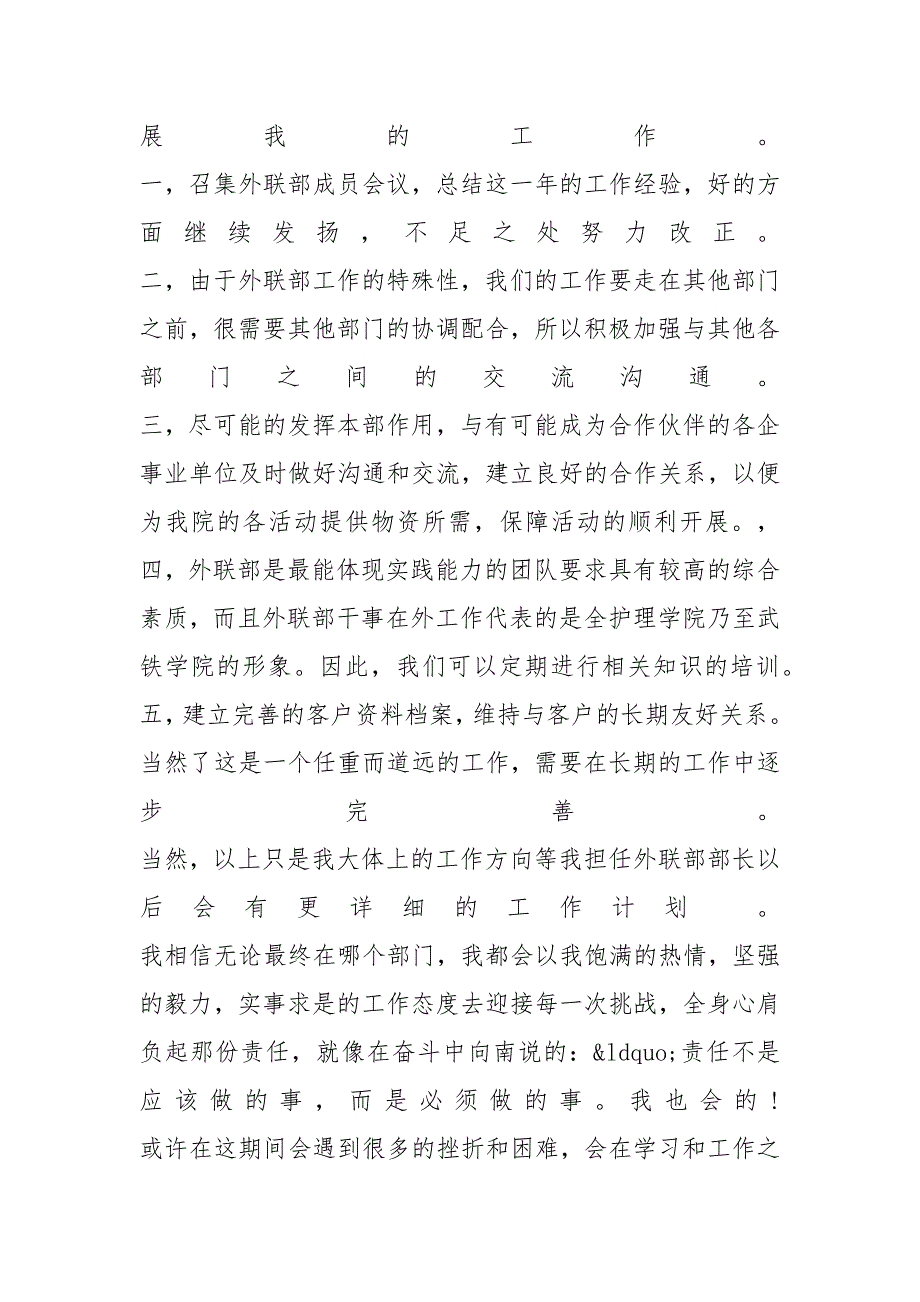 展我的工作。
一，召集外联部成员会议，总结这一年的工作经验，好的方
面继续发扬，不足之处努力改正。
二，由于外联部工作的特殊性，我们的工作要走在其他部门
之前，很需要其他部门的协调配合，所以积极加强与其他各
部门之间的交流沟通。
三，尽可能的发挥本部作用，与有可能成为合作伙伴的各企
事业单位及时做好沟通和交流，建立良好的合作关系，以便
为我院的各活动提供物资所需，保障活动的顺利开展。，
四，外联部是最能体现实践能力的团队要求具有较高的综合
素质，而且外联部干事在外工作代表的是全护理学院乃至武
铁学院的形象。因此，我们可以定期进行相关知识的培训。
五，建立完善的客户资料档案，维持与客户的长期友好关系。
当然了这是一个任重而道远的工作，需要在长期的工作中逐
步完善。
当然，以上只是我大体上的工作方向等我担任外联部部长以
后会有更详细的工作计划。
我相信无论最终在哪个部门，我都会以我饱满的热情，坚强
的毅力，实事求是的工作态度去迎接每一次挑战，全身心肩
负起那份责任，就像在奋斗中向南说的：&ldquo;责任不是
应该做的事，而是必须做的事。我也会的!
或许在这期间会遇到很多的挫折和困难，会在学习和工作之